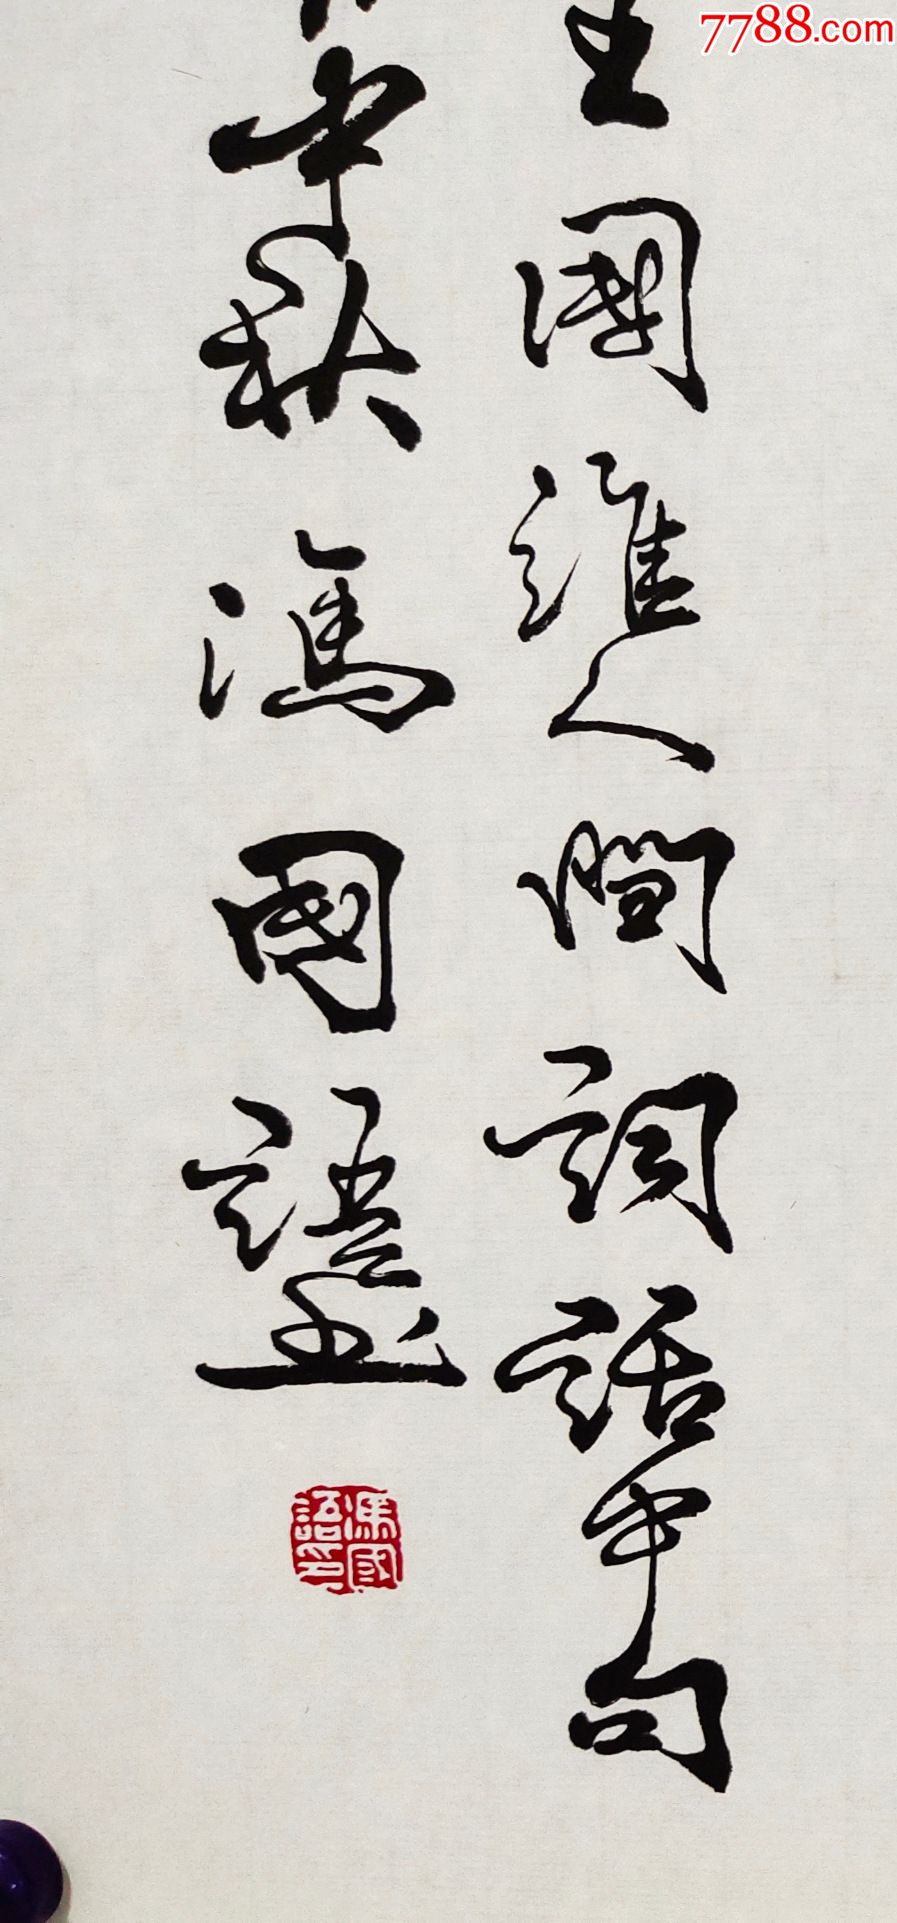 7788.com
王國維人間詞話中句
中秋馮國語書
馮國語印